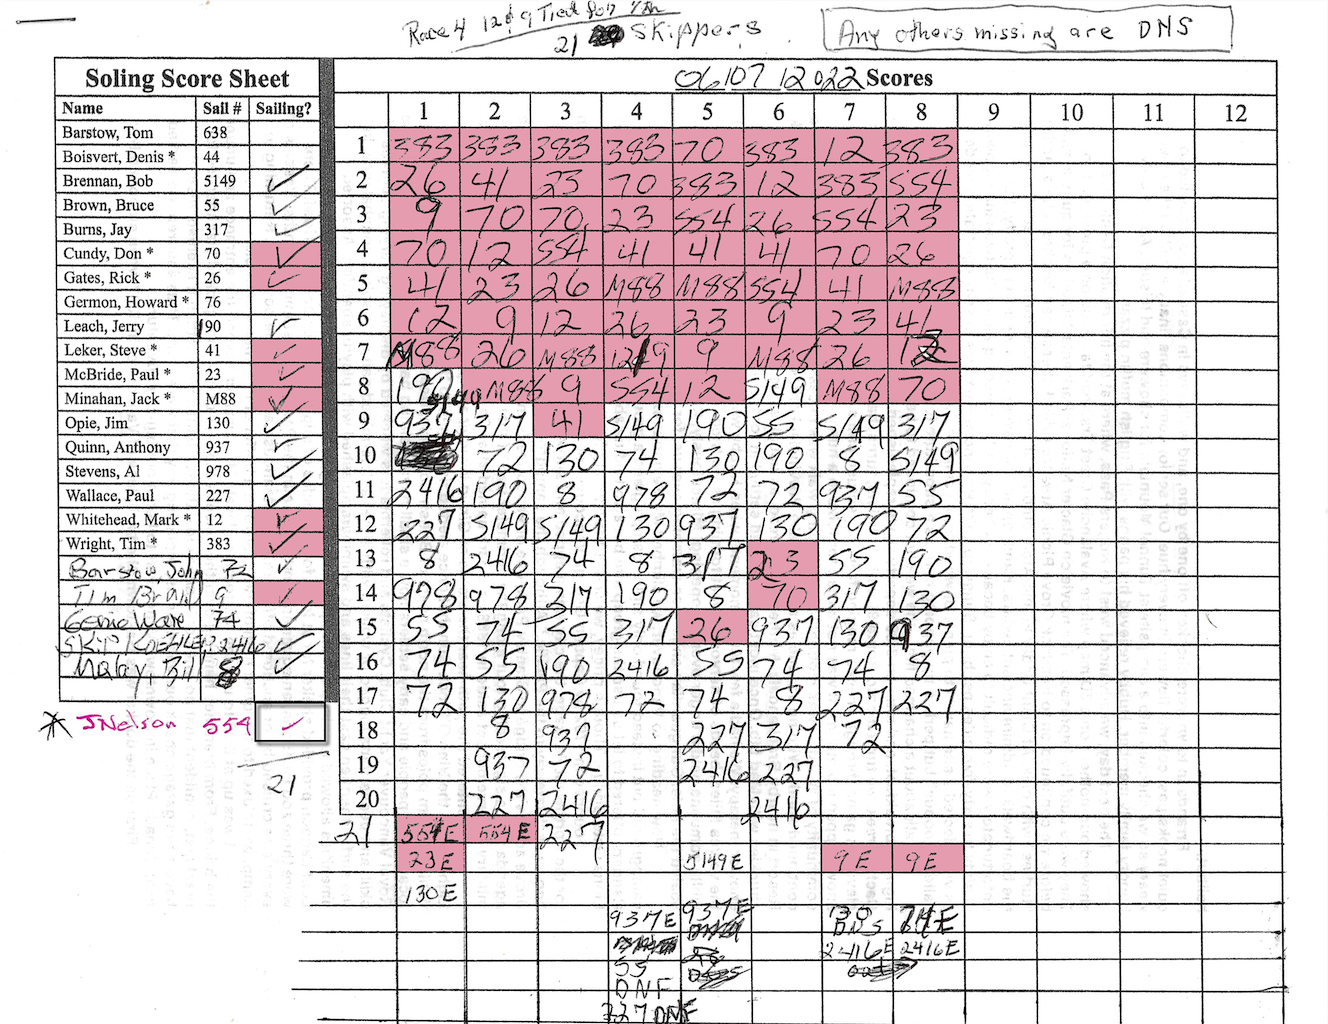 Race 4 12 & 9 Tied for 7th
21 Skippers
Any others missing are DNS
Soling Score Sheet
06/07/2022 Scores
Name Sail # Sailing?
1 2 3 4 5 6 7 8 9 10 11 12
Barstow, Tom 638
Boisvert, Denis * 44
Brennan, Bob 5149 ✓
Brown, Bruce 55 ✓
Burns, Jay 317 ✓
Cundy, Don * 70 ✓
Gates, Rick * 26 ✓
Germon, Howard * 76
Leach, Jerry 190 ✓
Leker, Steve * 41 ✓
McBride, Paul * 23 ✓
Minahan, Jack * M88 ✓
Opie, Jim 130 ✓
Quinn, Anthony 937 ✓
Stevens, Al 978 ✓
Wallace, Paul 227 ✓
Whitehead, Mark * 12 ✓
Wright, Tim * 383 ✓
Barstow, John 72 ✓
Tim Brand 9 ✓
Genie Ware 74 ✓
SKIP KOEHLER 2416 ✓
Malay, Bill 8 ✓
* JNelson 554 ✓
21
1 383 383 383 383 70 383 12 383
2 26 41 23 70 383 12 383 554
3 9 70 70 23 554 26 554 23
4 70 12 554 41 41 41 70 26
5 41 23 26 M88 M88 554 41 M88
6 12 9 12 26 23 9 23 41
7 M88 26 M88 12/9 9 M88 26 12
8 190 5149 M88 9 554 12 5149 M88 70
9 937 317 41 5149 190 55 5149 317
10 72 130 74 130 190 8 5149
11 2416 190 8 978 72 72 937 55
12 227 5149 5149 130 937 130 190 72
13 8 2416 74 8 317 23 55 190
14 978 978 317 190 8 70 317 130
15 55 74 55 317 26 937 130 937
16 74 55 190 2416 55 74 74 8
17 72 130 978 72 74 8 227 227
18 8 937 227 317 72
19 937 72 2416 227
20 227 2416 2416
21 554E 554E 227
23E 5149E 9E 9E
130E
937E 937E 130 74E
DNS
55 2416E 2416E
DNF
227 DNF